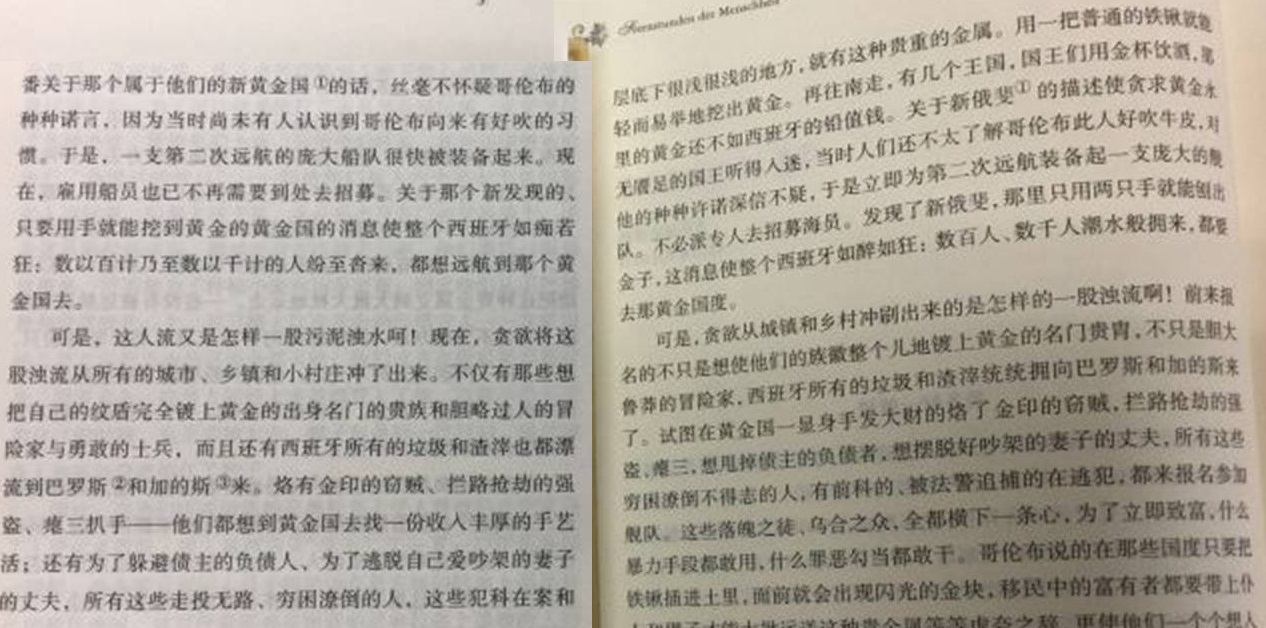 番关于那个属于他们的新黄金国①的话，丝毫不怀疑哥伦布的
种种诺言，因为当时尚未有人认识到哥伦布向来有好吹的习
惯。于是，一支第二次远航的庞大船队很快被装备起来。现
在，雇用船员也已不再需要到处去招募。关于那个新发现的、
只要用手就能挖到黄金的黄金国的消息使整个西班牙如痴若
狂：数以百计乃至数以千计的人纷至沓来，都想远航到那个黄
金国去。
可是，这人流又是怎样一股污泥浊水呵！现在，贪欲将这
股浊流从所有的城市、乡镇和小村庄冲了出来。不仅有那些想
把自己的纹盾完全镀上黄金的出身名门的贵族和胆略过人的冒
险家与勇敢的士兵，而且还有西班牙所有的垃圾和渣滓也都漂
流到巴罗斯②和加的斯③来。烙有金印的窃贼、拦路抢劫的强
盗、瘪三扒手——他们都想到黄金国去找一份收入丰厚的手艺
活；还有为了躲避债主的负债人、为了逃脱自己爱吵架的妻子
的丈夫，所有这些走投无路、穷困潦倒的人，这些犯科在案和
Sternstunden der Menschheit
层底下很浅很浅的地方，就有这种贵重的金属。用一把普通的铁锹就能
轻而易举地挖出黄金。再往南走，有几个王国，国王们用金杯饮酒，那
里的黄金还不如西班牙的铅值钱。关于新俄斐①的描述使贪求黄金永
无餍足的国王听得入迷，当时人们还不太了解哥伦布此人好吹牛皮，对
他的种种许诺深信不疑，于是立即为第二次远航装备起一支庞大的舰
队。不必派专人去招募海员。发现了新俄斐，那里只用两只手就能刨出
金子，这消息使整个西班牙如醉如狂：数百人、数千人潮水般拥来，都要
去那黄金国度。
可是，贪欲从城镇和乡村冲刷出来的是怎样的一股浊流啊！前来报
名的不只是想使他们的族徽整个儿地镀上黄金的名门贵胄，不只是胆大
鲁莽的冒险家，西班牙所有的垃圾和渣滓统统拥向巴罗斯和加的斯来
了。试图在黄金国一显身手发大财的烙了金印的窃贼，拦路抢劫的强
盗、瘪三，想甩掉债主的负债者，想摆脱好吵架的妻子的丈夫，所有这些
穷困潦倒不得志的人，有前科的、被法警追捕的在逃犯，都来报名参加
舰队。这些落魄之徒、乌合之众，全都横下一条心，为了立即致富，什么
暴力手段都敢用，什么罪恶勾当都敢干。哥伦布说的在那些国度只要把
铁锹插进土里，面前就会出现闪光的金块，移民中的富有者都要带上仆